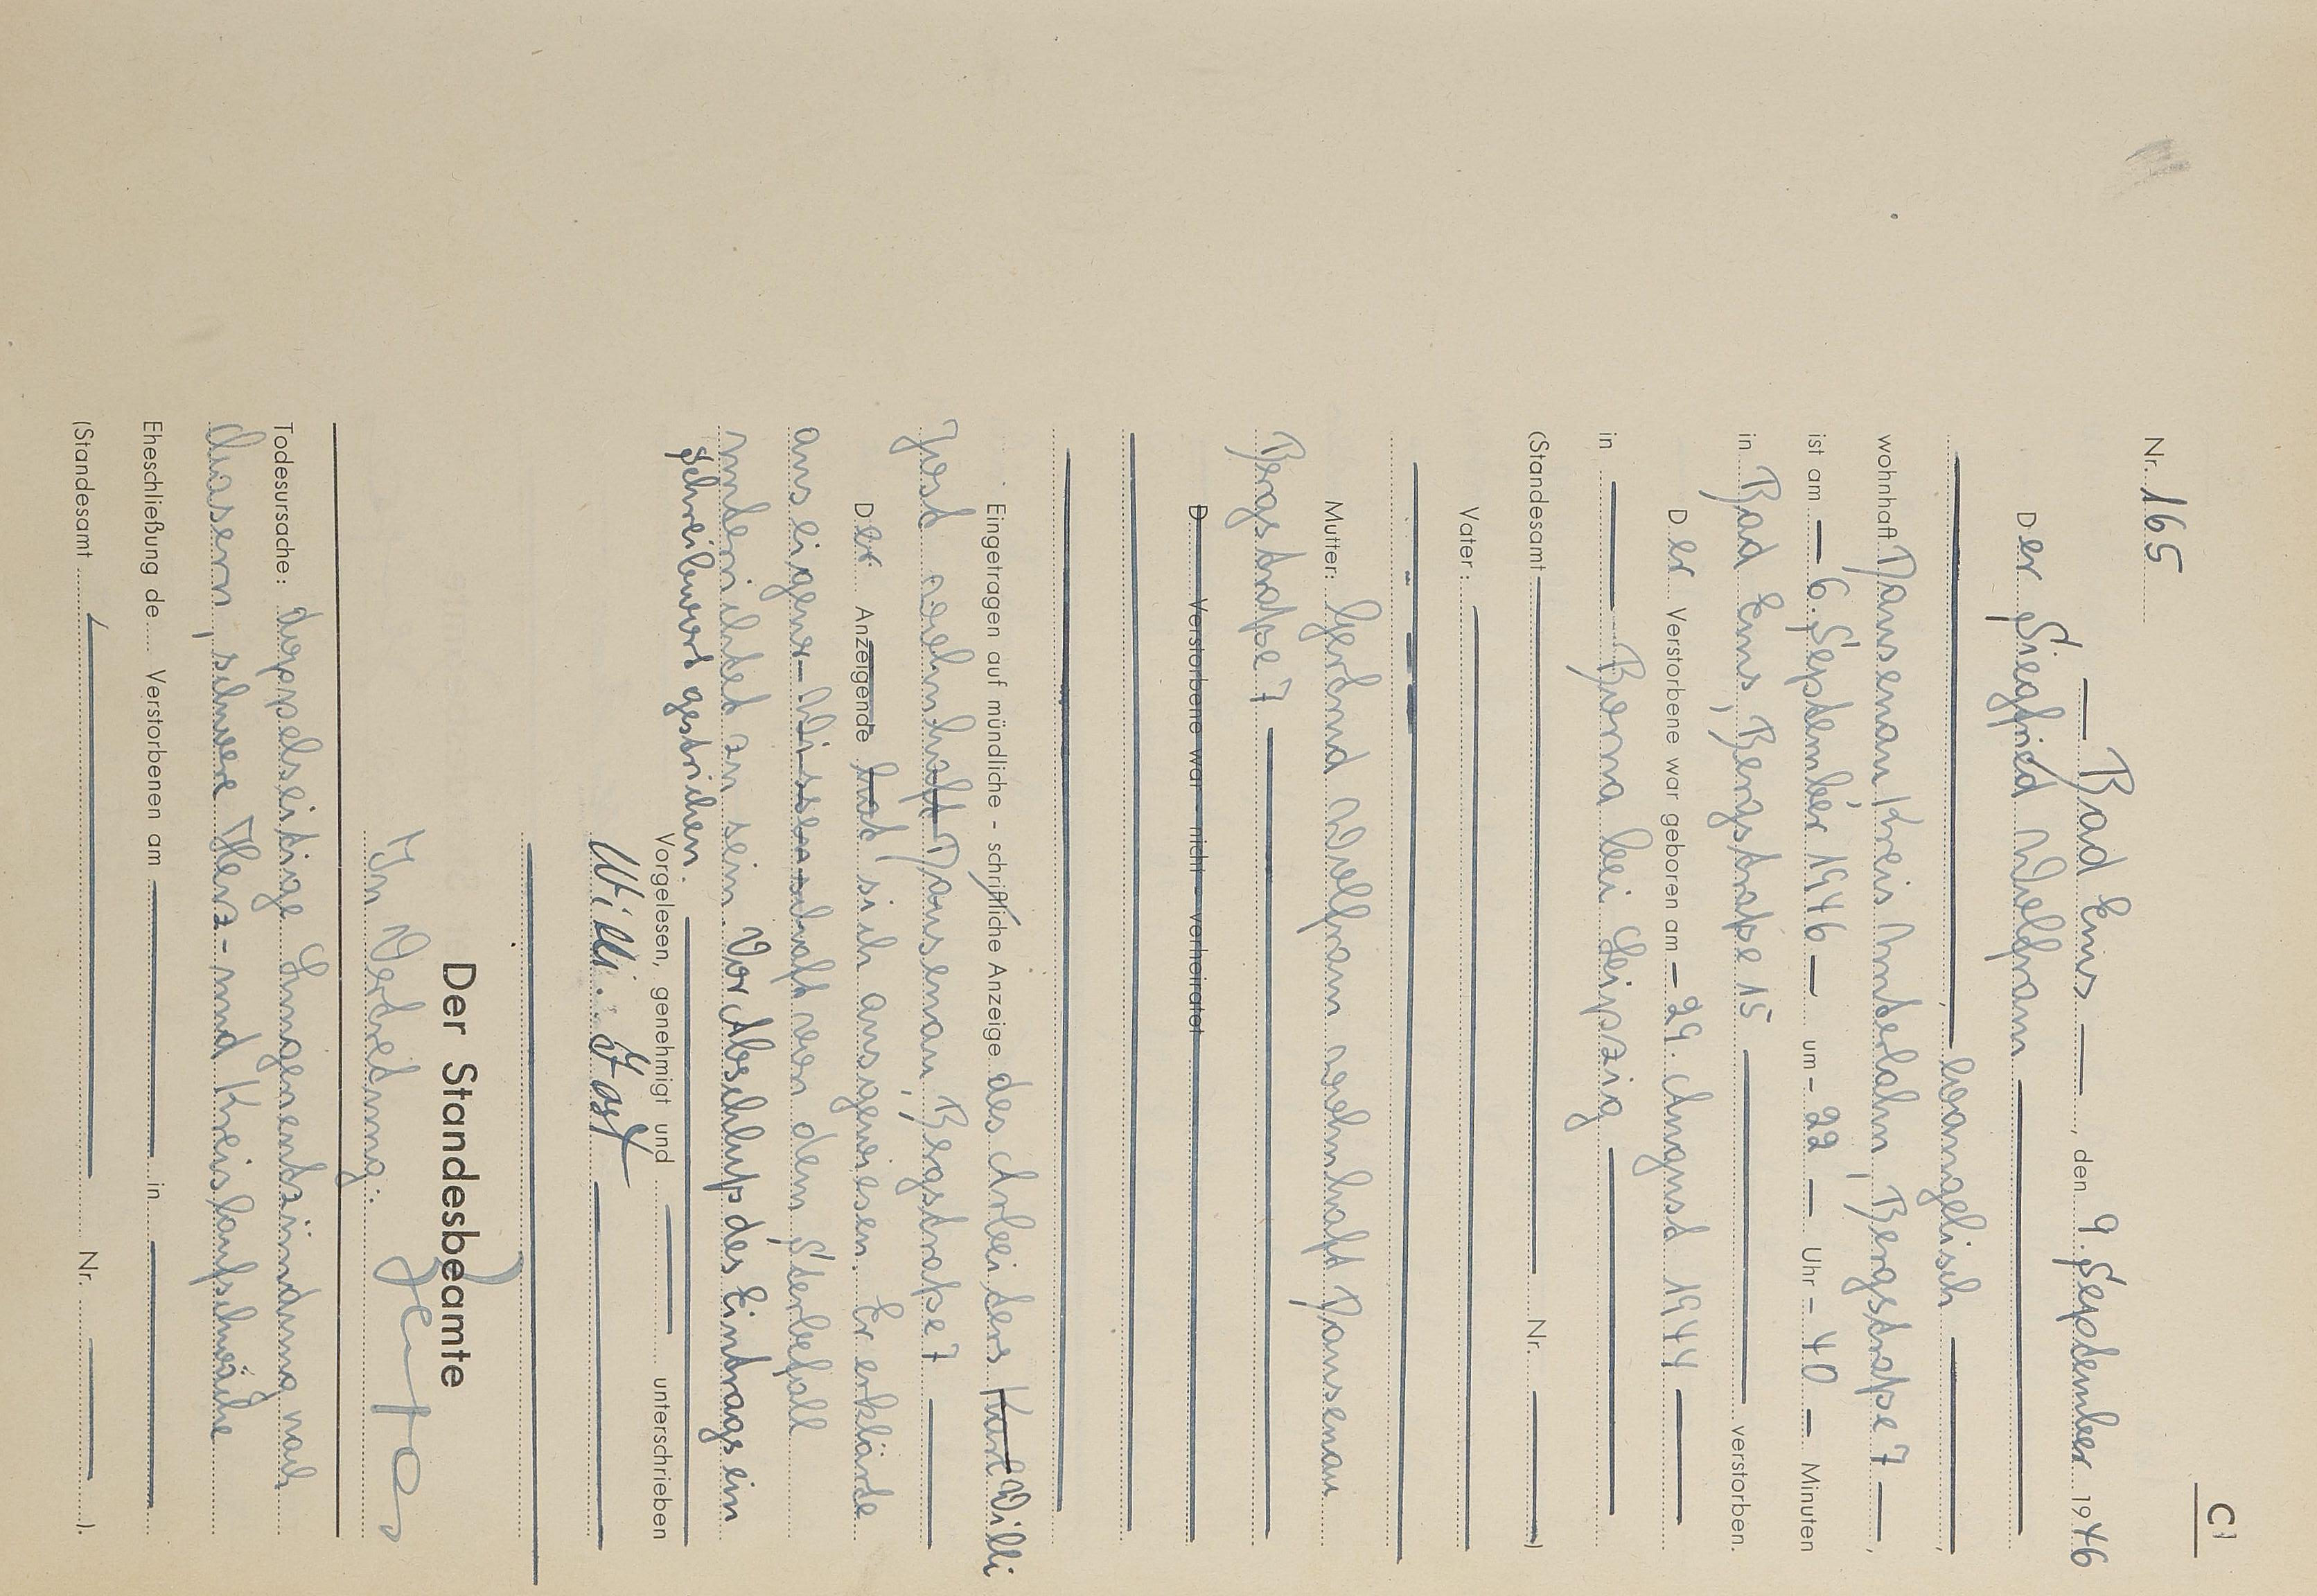 C1
Nr. 165
— Bad Ems —, den 9. September 1946
Der Siegfried Wolfram —
— evangelisch —,
wohnhaft Dausenau, Kreis Unterlahn, Bergstraße 7 —,
ist am — 6. September 1946 — um - 22 — Uhr - 40 - Minuten
in Bad Ems, Bergstraße 15 — verstorben.
Der Verstorbene war geboren am - 29. August 1944 —
in — Borna bei Leipzig —
(Standesamt — Nr. —)
Vater: —
Mutter: Gertrud Wolfram wohnhaft Dausenau
Bergstraße 7 —
D— Verstorbene war – nicht – verheiratet
Eingetragen auf mündliche - schriftliche Anzeige des Arbeiters Karl Willi
Jost wohnhaft Dausenau, Bergstraße 7 —
Der Anzeigende hat sich ausgewiesen. Er erklärte
aus eigener Wissenschaft von dem Sterbefall
unterrichtet zu sein. Vor Abschluß des Eintrags ein
Schreibwort gestrichen. —
Vorgelesen, genehmigt und — unterschrieben
Willi. Jost —
Der Standesbeamte
In Vertretung:
Todesursache: doppelseitige Lungenentzündung nach
Masern, schwere Herz- und Kreislaufschwäche
Eheschließung de.... Verstorbenen am — in —
(Standesamt — Nr. — ).